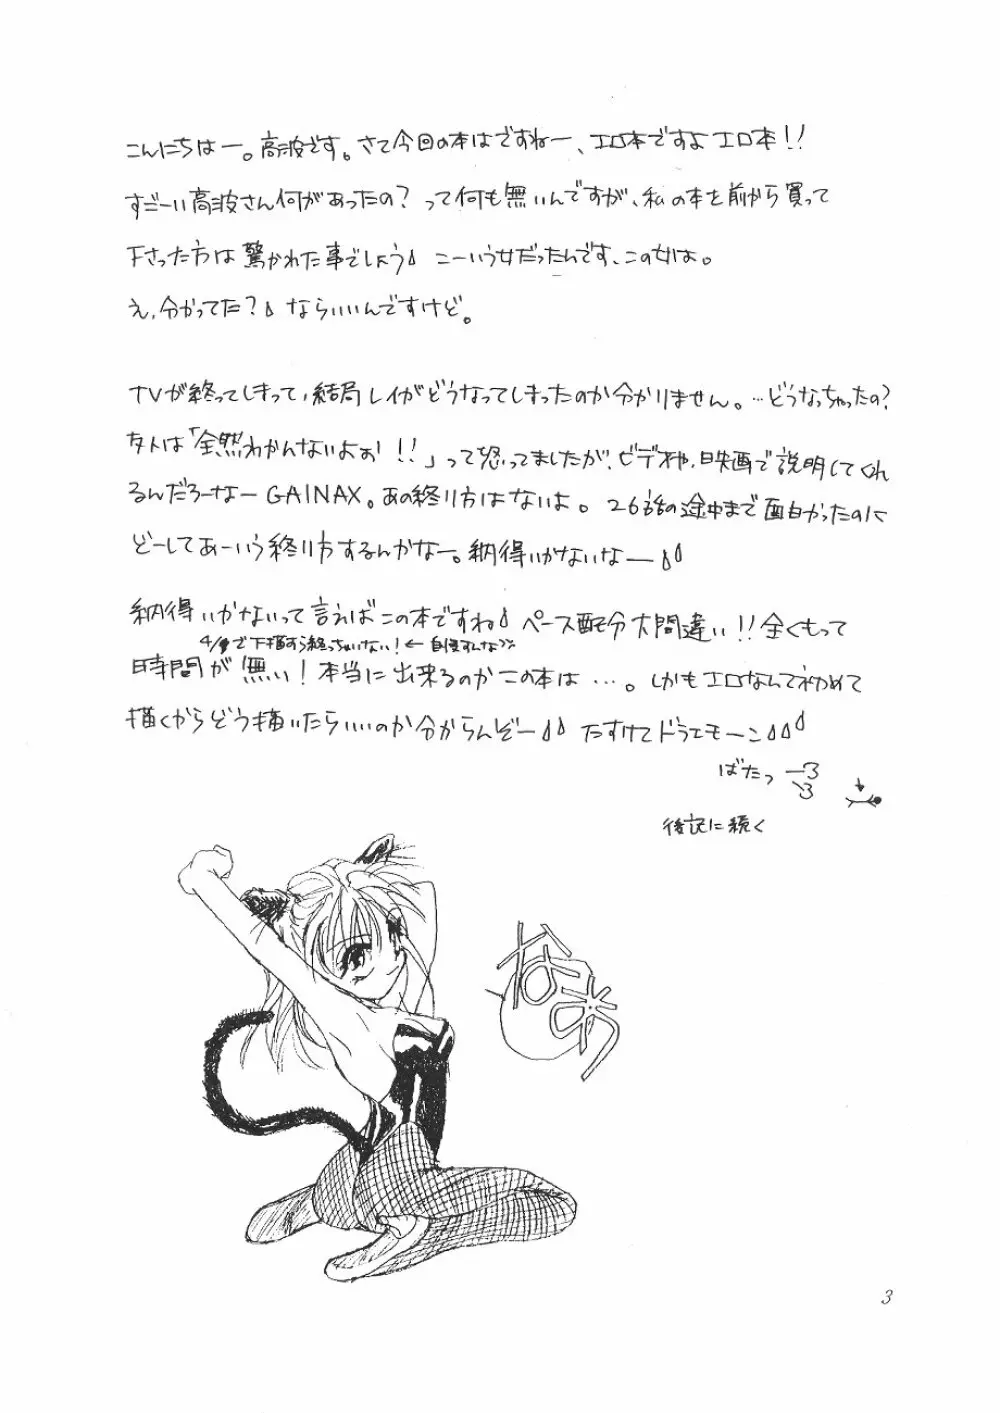 こんにちはー。高波です。さて今回の本はですねー、エロ本ですよエロ本!!
すごーい高波さん何があったの?って何も無いんですが、私の本を前から買って
下さった方は驚かれた事でしょう こーいう女だったんです、この女は。
え、分かってた? ならいいんですけど。
TVが終ってしまって、結局レイがどうなってしまったのか分かりません。…どうなっちゃったの?
友人は「全然わかんないよぉ!!」って怒ってましたが、ビデオや、映画で説明してくれ
るんだろーなー GAINAX。あの終り方はないよ。26話の途中まで面白かったのに
どーしてあーいう終り方するんかなー。納得いかないなー
納得いかないって言えばこの本ですね ペース配分大間違い!!全くもって
で下描すら終っちゃいない!← 自慢すんな
時間が無い!本当に出来るのかこの本は…。しかもエロなんて初めて
描くからどう描いたらいいのか分からんぞー たすけてドラエモーン
ばたっ
後記に続く
なあ
3